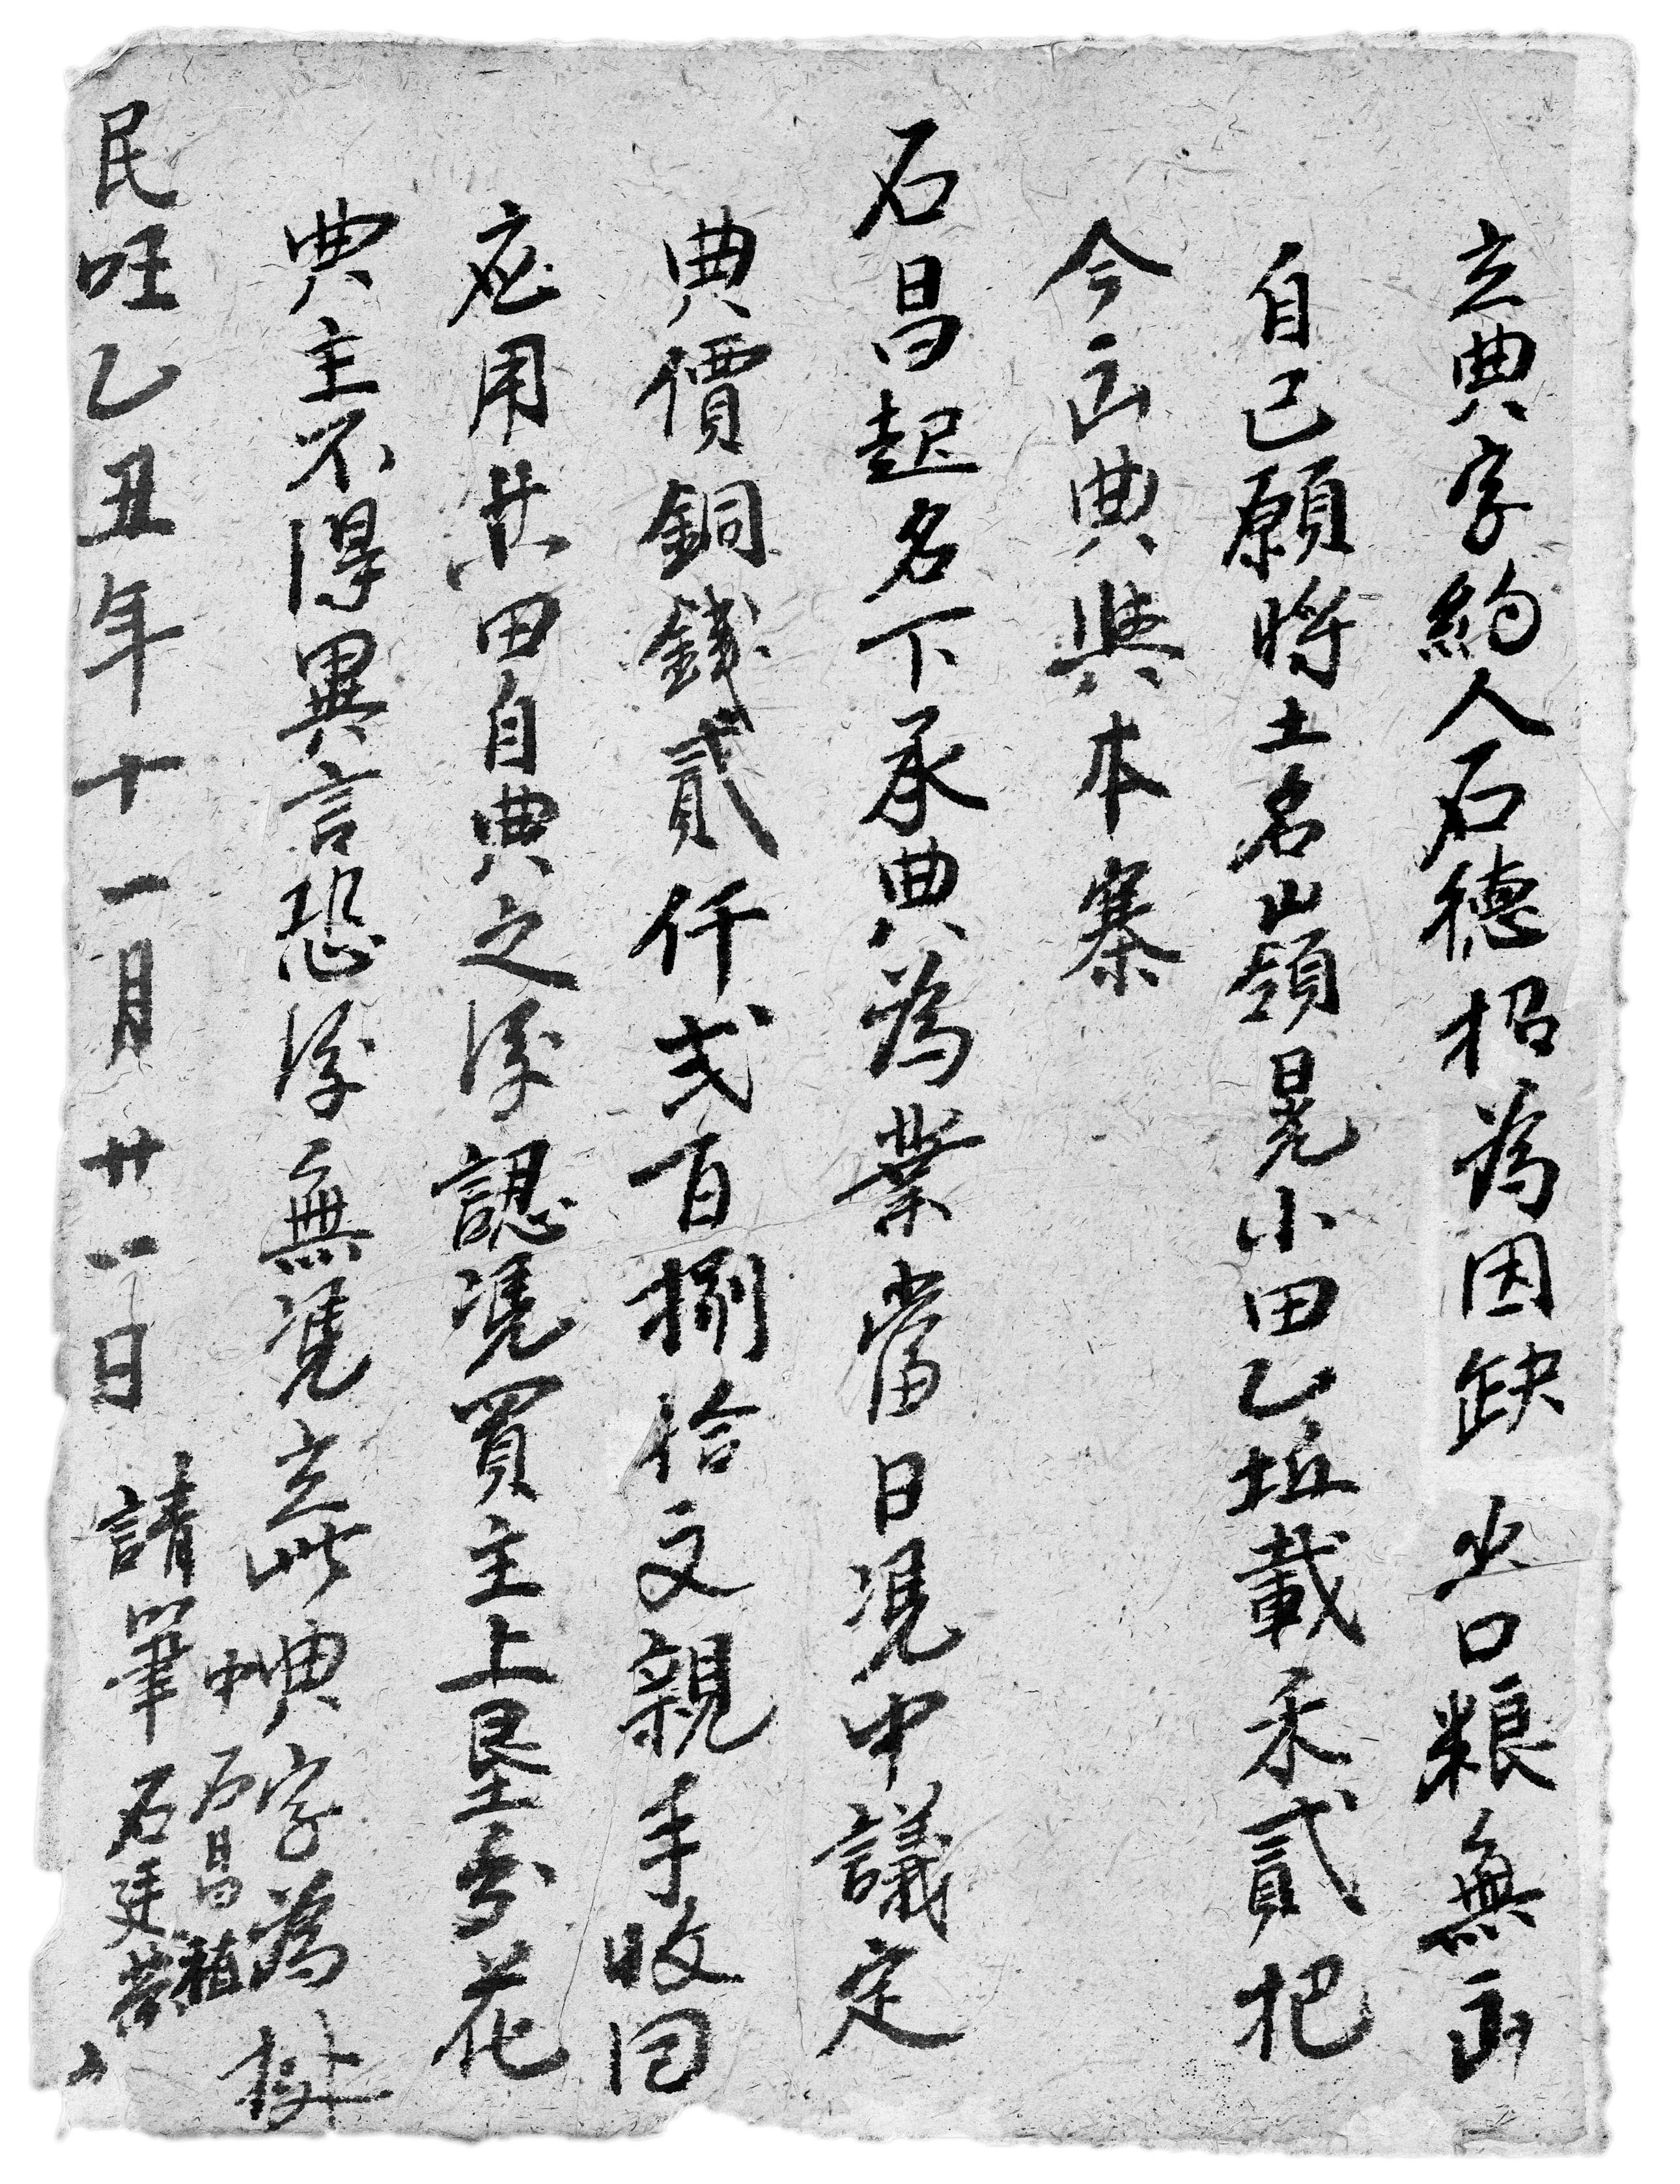 立典字約人石德招為因缺少口粮無出
自己願將土名山嶺晃小田乙坵載禾貳把
今出典與本寨
石昌起名下承典為業當日凴中議定
典價銅錢貳仟弍百捌拾文親手收回
応用其田自典之後認凴買主上墾分花
典主不得異言恐後無凴立此典字為拠
中 石昌植
民旺乙丑年十一月廿一日 請筆 石廷荣